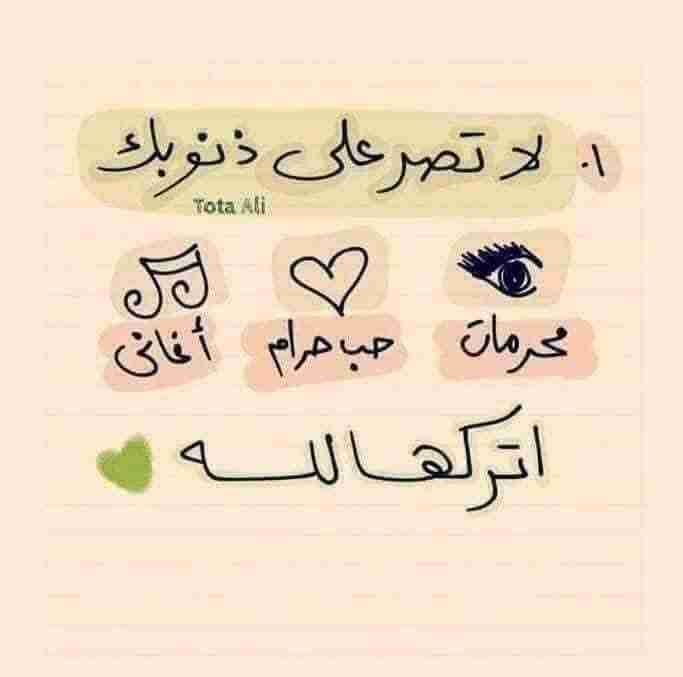 ١. لا تصر على ذنوبك
Tota Ali
محرمات حب حرام أغاني
اتركها لله